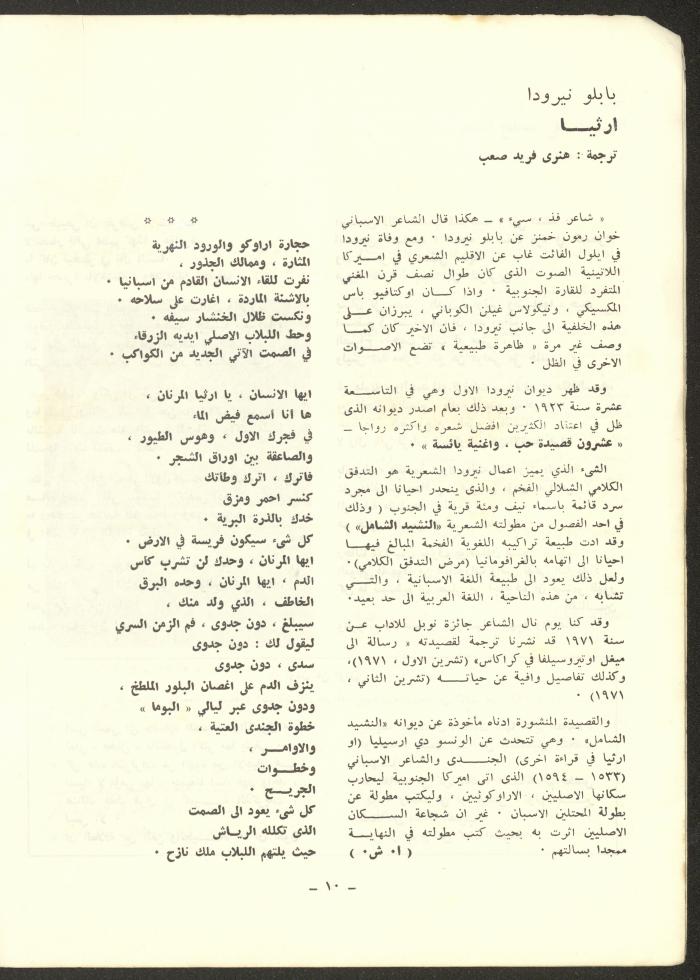 بابلو نيرودا
ارثيـــا
ترجمة : هنرى فريد صعب
« شاعر فذ ، سيء » ــ هكذا قال الشاعر الاسباني
خوان رمون خمنز عن بابلو نيرودا ٠ ومع وفاة نيرودا
في ايلول الفائت غاب عن الاقليم الشعري في اميركا
اللاتينية الصوت الذى كان طوال نصف قرن المغني
المتفرد للقارة الجنوبية ٠ واذا كـــان اوكتافيو باس
المكسيكي ، ونيكولاس غيلن الكوباني ، يبرزان علـى
هذه الخلفية الى جانب نيرودا ، فان الاخير كان كمـا
وصف غير مرة « ظاهرة طبيعية » تضع الاصـوات
الاخرى في الظل ٠
وقد ظهر ديوان نيرودا الاول وهي في التاسـعة
عشرة سنة ١٩٢٣ ٠ وبعد ذلك بعام اصدر ديوانه الذى
ظل في اعتقاد الكثيرين افضل شعره واكثره رواجا ــ
« عشرون قصيدة حب ، واغنية يائسة » ٠
الشىء الذي يميز اعمال نيرودا الشعرية هو التدفق
الكلامي الشلالي الفخم ، والذى ينحدر احيانا الى مجرد
سرد قائمة باسماء نيف ومئة قرية في الجنوب ( وذلك
في احد الفصول من مطولته الشعرية «النشيد الشامل» )
وقد ادت طبيعة تراكيبه اللغوية الفخمة المبالغ فيهـا
احيانا الى اتهامه بالغرافومانيا (مرض التدفق الكلامي)٠
ولعل ذلك يعود الى طبيعة اللغة الاسبانية ، والتـي
تشابه ، من هذه الناحية ، اللغة العربية الى حد بعيد٠
وقد كنا يوم نال الشاعر جائزة نوبل للاداب عـن
سنة ١٩٧١ قد نشرنا ترجمة لقصيدته « رسالة الى
ميغل اوتيروسيلفا في كراكاس» (تشرين الاول ، ١٩٧١)،
وكذلك تفاصيل وافية عن حياتـــه (تشرين الثاني ،
١٩٧١) ٠
والقصيدة المنشورة ادناه ماخوذة عن ديوانه «النشيد
الشامل» ٠ وهي تتحدث عن الونسو دي ارسيليا (او
ارثيا في قراءة اخرى) الجنـــدى والشاعر الاسباني
(١٥٣٣ ــ ١٥٩٤) الذى اتى اميركا الجنوبية ليحارب
سكانها الاصليين ، الاراوكوتيين ، وليكتب مطولة عن
بطولة المحتلين الاسبان ٠ غير ان شجاعة الســـكان
الاصليين اثرت به بحيث كتب مطولته في النهايـة
ممجدا بسالتهم ٠ ( ا٠ ش٠ )
* * *
حجارة اراوكو والورود النهرية
المثارة ، وممالك الجذور ،
نفرت للقاء الانسان القادم من اسبانيا ٠
بالاشنة الماردة ، اغارت على سلاحه ٠
ونكست ظلال الخنشار سيفه ٠
وحط اللبلاب الاصلي ايديه الزرقاء
في الصمت الآتي الجديد من الكواكب ٠
ايها الانسان ، يا ارثيا المرنان ،
ها أنا أسمع فيض الماء
في فجرك الاول ، وهوس الطيور ،
والصاعقة بين اوراق الشجر ٠
فاترك ، اترك وطأتك
كنسر احمر ومزق
خدك بالذرة البرية ٠
كل شىء سيكون فريسة في الارض ٠
ايها المرنان ، وحدك لن تشرب كاس
الدم ، ايها المرنان ، وحده البرق
الخاطف ، الذي ولد منك ،
سيبلغ ، دون جدوى ، فم الزمن السري
ليقول لك : دون جدوى
سدى ، دون جدوى
ينزف الدم على اغصان البلور الملطخ ،
ودون جدوى عبر ليالي « البوما »
خطوة الجندى العتية ،
والاوامـــر ،
وخطـــوات
الجريـــح ٠
كل شىء يعود الى الصمت
الذى تكلله الريـاش
حيث يلتهم اللبلاب ملك نازح ٠
ــ ١٠ ــ